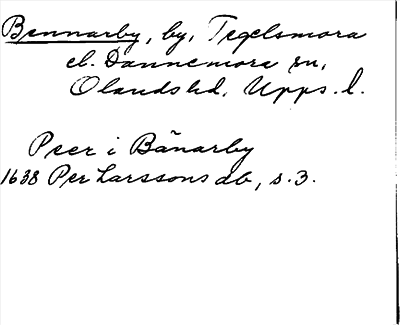 Bennarby, by, Tegelsmora
el. Dannemora sn,
Olands hd, Upps. l.
Peer i Bänarby
1638 Per Larssons db, s. 3.